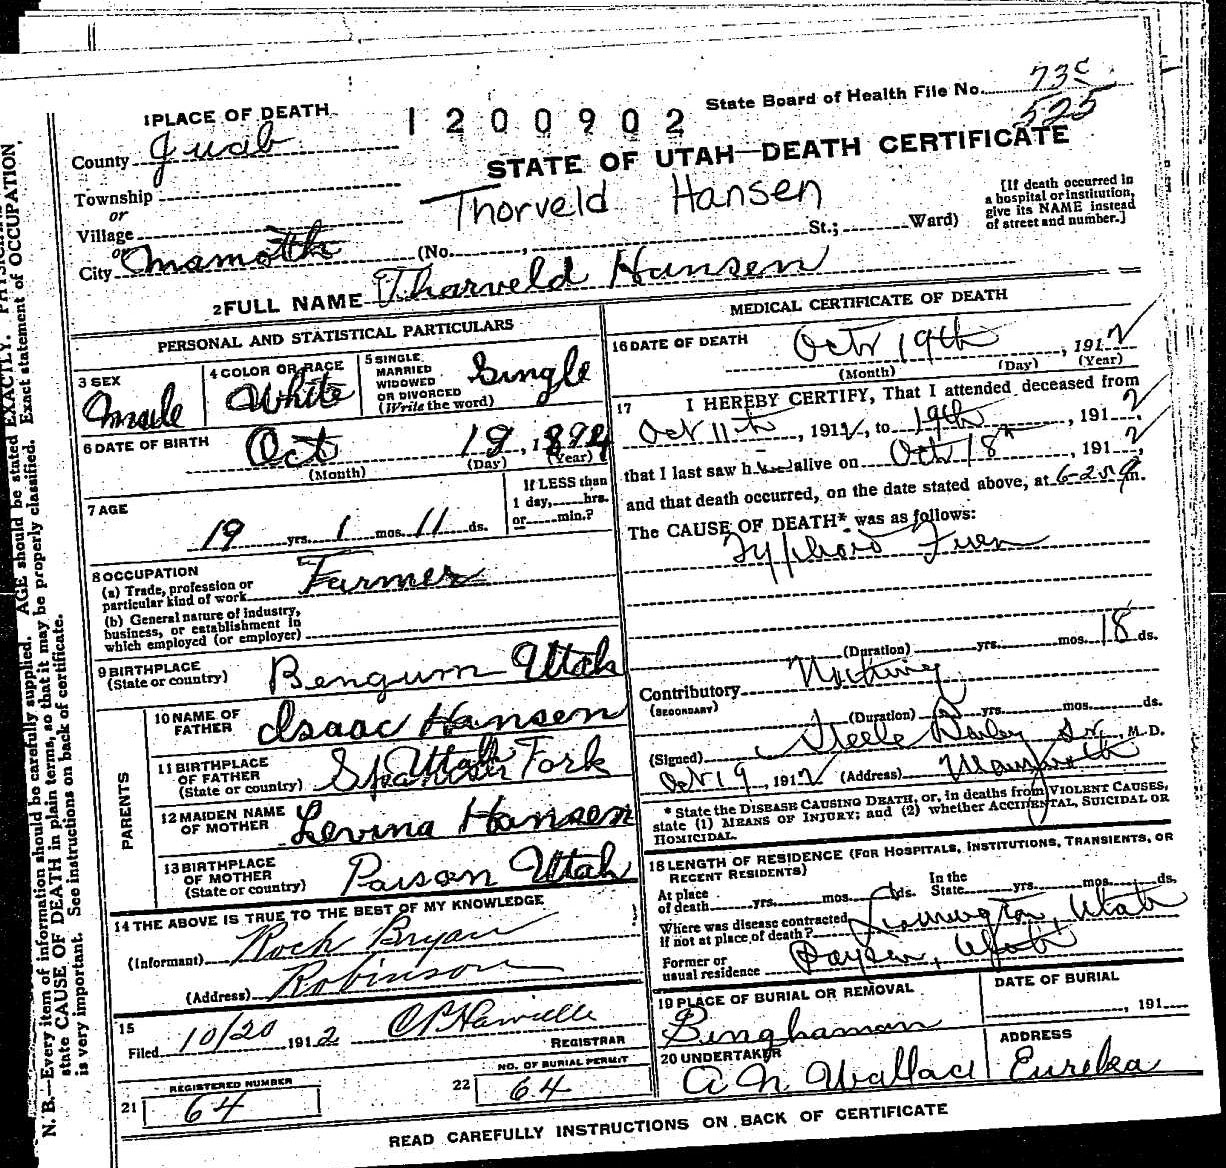 State Board of Health File No. 73c
525
1 PLACE OF DEATH
1200902
County Juab
STATE OF UTAH—DEATH CERTIFICATE
Township
or
Village
or
City Mamoth
Thorveld Hansen
(No. , St.; Ward)
[If death occurred in a hospital or institution, give its NAME instead of street and number.]
2 FULL NAME Tharveld Hansen
PERSONAL AND STATISTICAL PARTICULARS
3 SEX
Male
4 COLOR OR RACE
White
5 SINGLE
MARRIED
WIDOWED
OR DIVORCED
(Write the word)
Single
6 DATE OF BIRTH
Oct 19, 1892
(Month) (Day) (Year)
7 AGE
19 yrs. 1 mos. 11 ds.
If LESS than
1 day, hrs.
or min.?
8 OCCUPATION
(a) Trade, profession or
particular kind of work
Farmer
(b) General nature of industry,
business, or establishment in
which employed (or employer)
9 BIRTHPLACE
(State or country)
Bengum Utah
PARENTS
10 NAME OF
FATHER
Isaac Hansen
11 BIRTHPLACE
OF FATHER
(State or country)
Spanish Fork
Utah
12 MAIDEN NAME
OF MOTHER
Levina Hansen
13 BIRTHPLACE
OF MOTHER
(State or country)
Paison Utah
14 THE ABOVE IS TRUE TO THE BEST OF MY KNOWLEDGE
(Informant) Rock Bryan
(Address) Robinson
15
Filed 10/20 1912
REGISTRAR
21 REGISTERED NUMBER
64
22 NO. OF BURIAL PERMIT
64
MEDICAL CERTIFICATE OF DEATH
16 DATE OF DEATH
Oct 19th, 1912
(Month) (Day) (Year)
17 I HEREBY CERTIFY, That I attended deceased from
Oct 11th, 1912, to 19th, 1912,
that I last saw h alive on Oct 18th, 1912,
and that death occurred, on the date stated above, at 6-25 m.
The CAUSE OF DEATH* was as follows:
Typhoid Fever
(Duration) yrs. mos. 18 ds.
Contributory
(SECONDARY)
(Duration) yrs. mos. ds.
(Signed) Steele Bailey Sr., M.D.
Oct 19, 1912 (Address) Mammoth
* State the DISEASE CAUSING DEATH, or, in deaths from VIOLENT CAUSES,
state (1) MEANS OF INJURY; and (2) whether ACCIDENTAL, SUICIDAL OR
HOMICIDAL.
18 LENGTH OF RESIDENCE (FOR HOSPITALS, INSTITUTIONS, TRANSIENTS, OR
RECENT RESIDENTS)
At place
of death yrs. mos. ds.
In the
State yrs. mos. ds.
Where was disease contracted,
if not at place of death? Utah
Former or
usual residence Payson, Utah
19 PLACE OF BURIAL OR REMOVAL
Binghaman
DATE OF BURIAL
, 191
20 UNDERTAKER
A N Wallace
ADDRESS
Eureka
READ CAREFULLY INSTRUCTIONS ON BACK OF CERTIFICATE
N. B.—Every item of information should be carefully supplied. AGE should be stated EXACTLY.
state CAUSE OF DEATH in plain terms, so that it may be properly classified. Exact statement of OCCUPATION
is very important. See instructions on back of certificate.